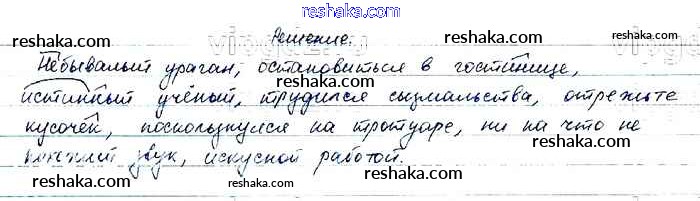 reshaka.com
Решение.
reshaka.com reshaka.com reshaka.com
Небывалый ураган, остановиться в гостинице,
истинный учёный, трудился сызмальства, отрежьте
reshaka.com reshaka.com reshaka.com
кусочек, поскользнулся на тротуаре, ни на что не
звук, искусной работой.
reshaka.com reshaka.com reshaka.com